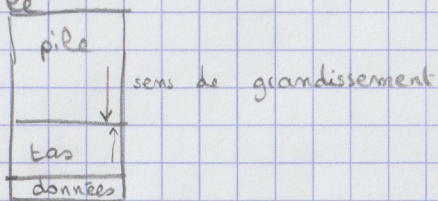 pile
sens de grandissement
tas
données